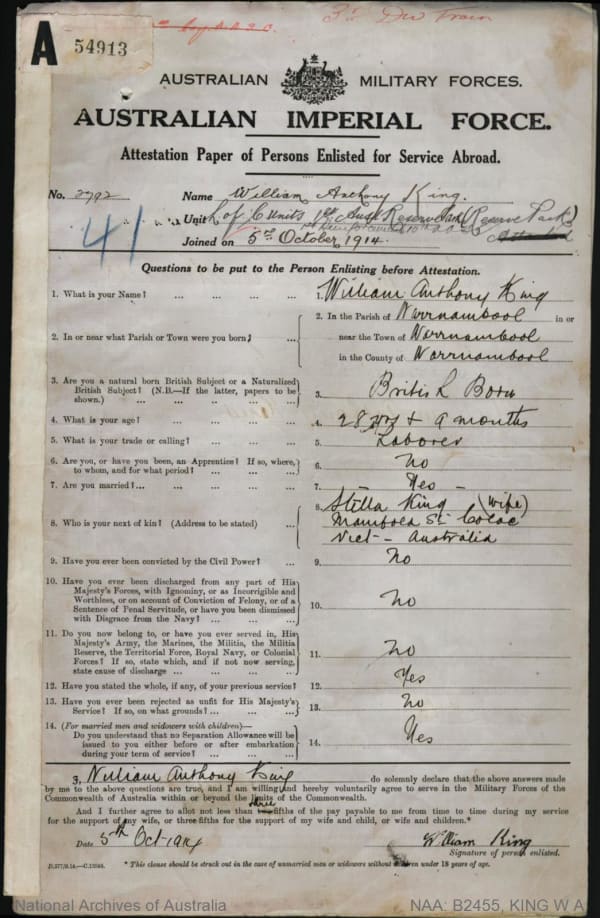 A 54913
3rd Div Train
AUSTRALIAN MILITARY FORCES.
AUSTRALIAN IMPERIAL FORCE.
Attestation Paper of Persons Enlisted for Service Abroad.
No. 2792 Name William Anthony King.
Unit L of C Units 1st Aust Reserve Park (Reserve Park)
41
Joined on 5th October 1914.
Questions to be put to the Person Enlisting before Attestation.
1. What is your Name? ... ... ... ... 1. William Anthony King
2. In or near what Parish or Town were you born? ... 2. In the Parish of Warrnambool in or
near the Town of Warrnambool
in the County of Warrnambool
3. Are you a natural born British Subject or a Naturalized
British Subject? (N.B.—If the latter, papers to be
shown.) ... ... ... ... 3. British Born
4. What is your age? ... ... ... ... 4. 28 yrs + 9 months
5. What is your trade or calling? ... ... ... 5. Laborer
6. Are you, or have you been, an Apprentice? If so, where,
to whom, and for what period? ... ... ... 6. No
7. Are you married? ... ... ... ... 7. - Yes -
8. Who is your next of kin? (Address to be stated) ... 8. Stella King (wife)
St Colac
Vict - Australia
9. Have you ever been convicted by the Civil Power? ... 9. No
10. Have you ever been discharged from any part of His
Majesty's Forces, with Ignominy, or as Incorrigible and
Worthless, or on account of Conviction of Felony, or of a
Sentence of Penal Servitude, or have you been dismissed
with Disgrace from the Navy? ... ... ... 10. No
11. Do you now belong to, or have you ever served in, His
Majesty's Army, the Marines, the Militia, the Militia
Reserve, the Territorial Force, Royal Navy, or Colonial
Forces? If so, state which, and if not now serving,
state cause of discharge ... ... ... ... 11. No
12. Have you stated the whole, if any, of your previous service? 12. Yes
13. Have you ever been rejected as unfit for His Majesty's
Service? If so, on what grounds? ... ... ... 13. No
14. (For married men and widowers with children)—
Do you understand that no Separation Allowance will be
issued to you either before or after embarkation
during your term of service? ... ... ... 14. Yes
I, William Anthony King do solemnly declare that the above answers made
by me to the above questions are true, and I am willing and hereby voluntarily agree to serve in the Military Forces of the
Commonwealth of Australia within or beyond the limits of the Commonwealth.
And I further agree to allot not less than three fifths of the pay payable to me from time to time during my service
for the support of my wife, or three-fifths for the support of my wife and child, or wife and children.*
Date 5th Oct-1914 William King
Signature of person enlisted.
* This clause should be struck out in the case of unmarried men or widowers without children under 18 years of age.
National Archives of Australia NAA: B2455, KING W A